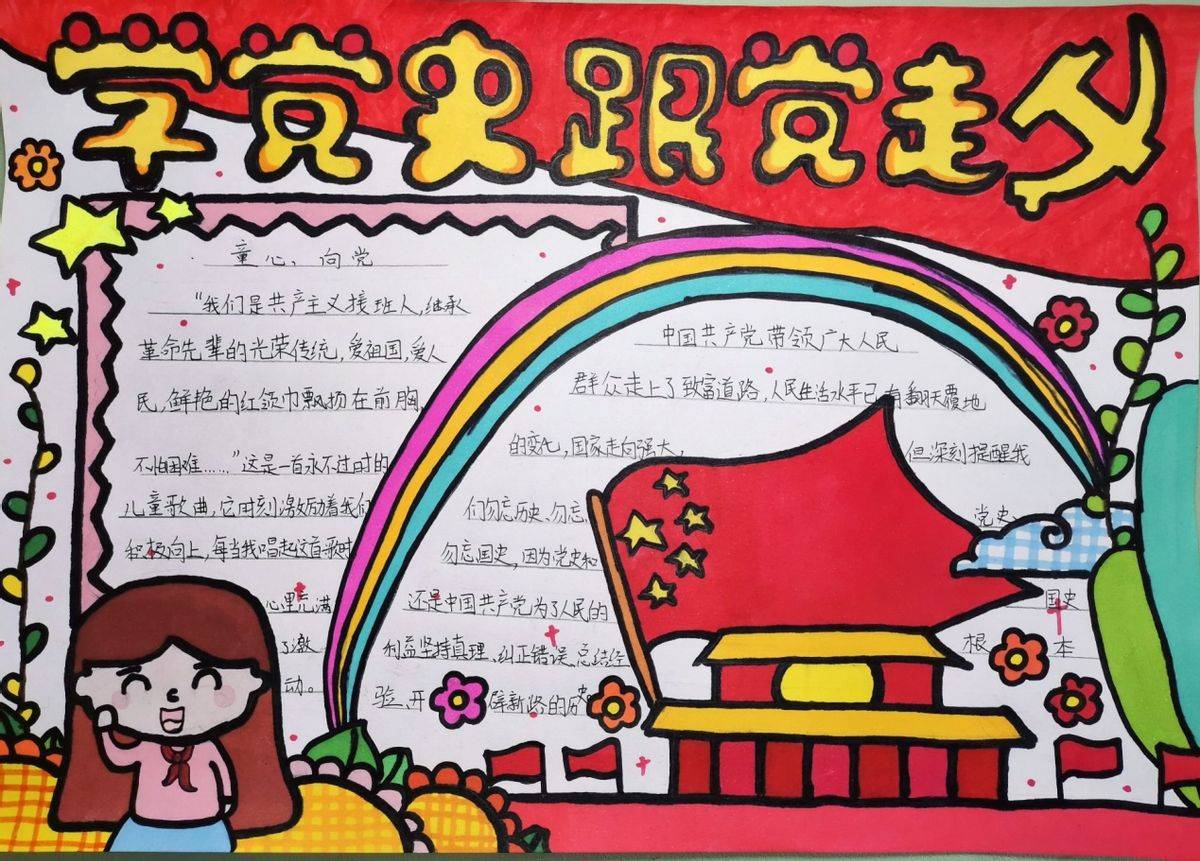 学党史跟党走
童心、向党
“我们是共产主义接班人,继承
革命先辈的光荣传统,爱祖国,爱人
民,鲜艳的红领巾飘扬在前胸,
不怕困难……”这是一首永不过时的
儿童歌曲,它时刻激励着我们
积极向上,每当我唱起这首歌时
心里充满
了激
动。
中国共产党带领广大人民
群众走上了致富道路,人民生活水平已有翻天覆地
的变化,国家走向强大, 但深刻提醒我
们勿忘历史、勿忘 党史、
勿忘国史,因为党史和 国史
还是中国共产党为了人民的 根本
利益坚持真理、纠正错误、总结经
验、开辟新路的历史